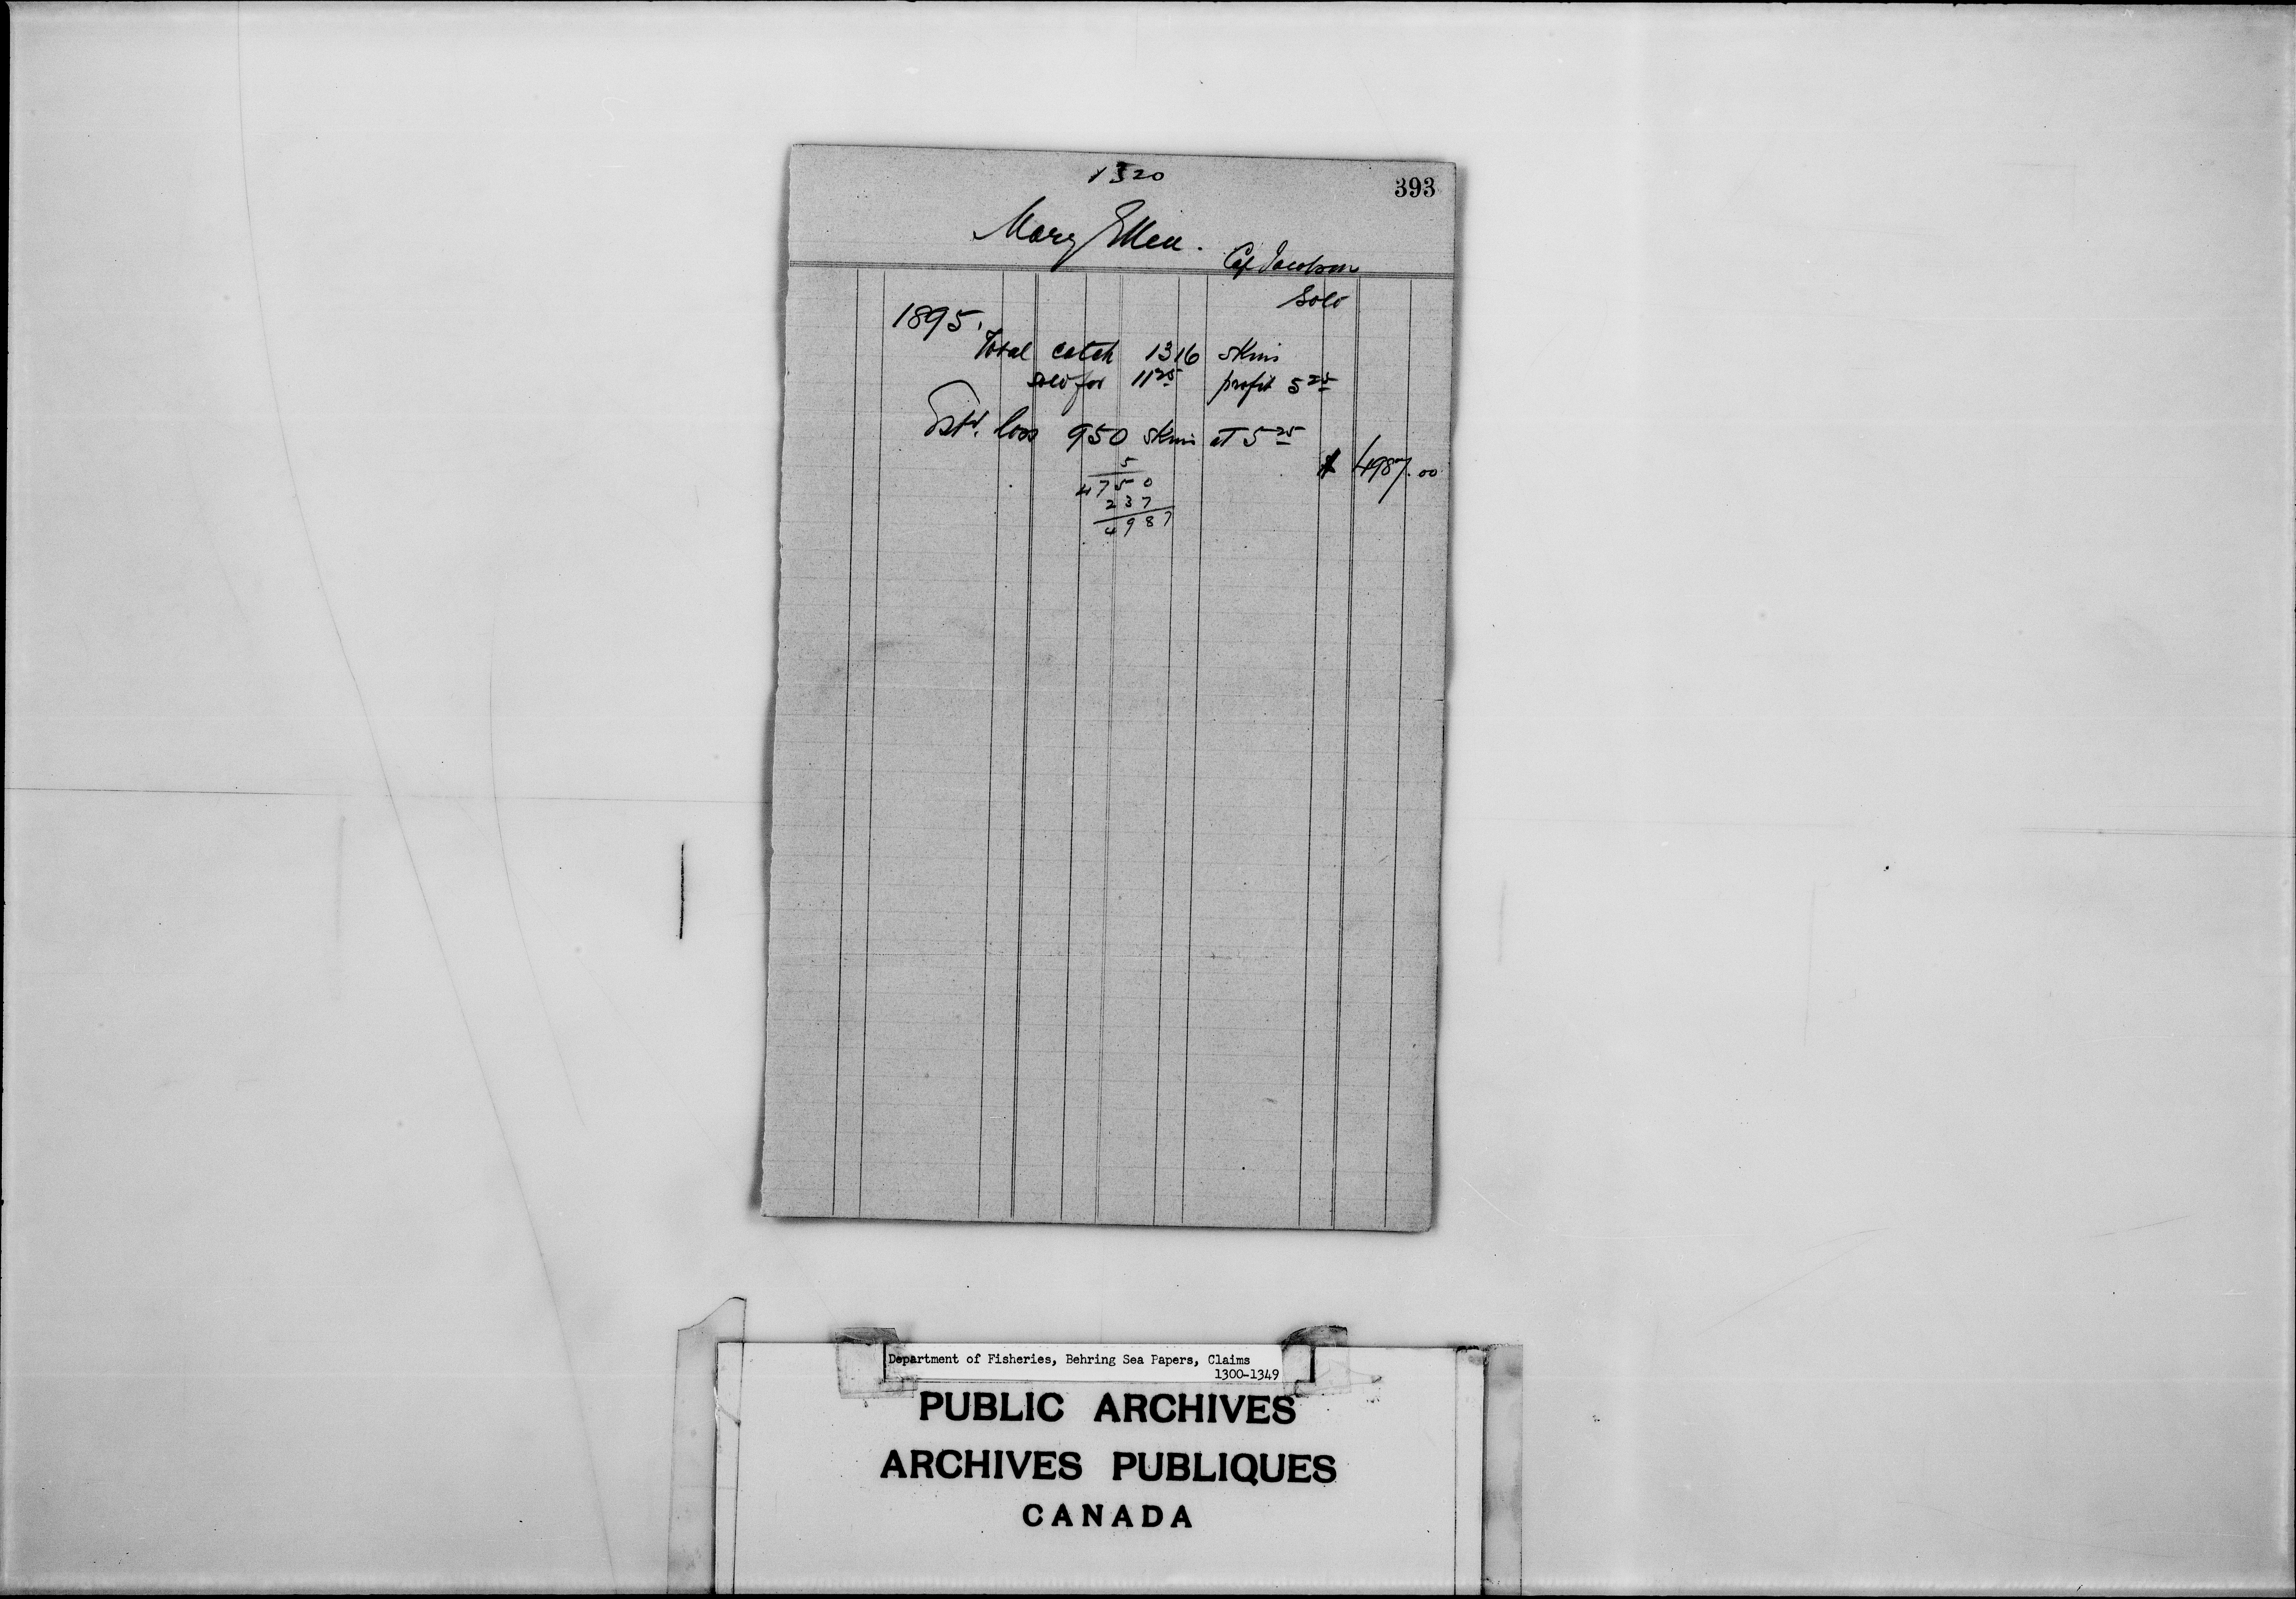 1320
393
Mary Ellen.
Cap Jacobson
Sold
1895.
Total catch 1316 skins
sold for 11 25 profit 5 25
Estd. loss 950 skins at 5 25
$ 4987.00
5
4750
237
4987
Department of Fisheries, Behring Sea Papers, Claims
1300-1349
PUBLIC ARCHIVES
ARCHIVES PUBLIQUES
CANADA